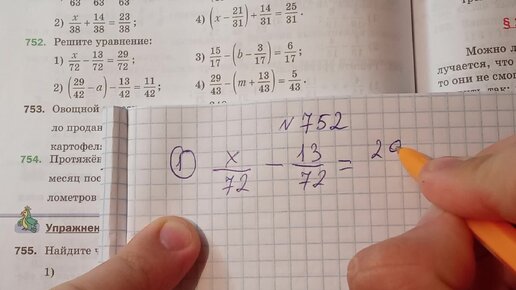 63 63 63
2) x/38 + 14/38 = 23/38;
4) (x − 21/31) + 14/31 = 25/31.
752. Решите уравнение:
1) x/72 − 13/72 = 29/72;
3) 15/17 − (b − 3/17) = 6/17;
2) (29/42 − a) − 13/42 = 11/42;
4) 29/43 − (m + 13/43) = 5/43.
753. Овощной
ло продан
картофел
754. Протяжён
месяц пос
лометров
Упражнен
755. Найдите ч
1)
§
Можно л
лучается, что
ти они не смог
№ 752
1) x/72 − 13/72 = 29